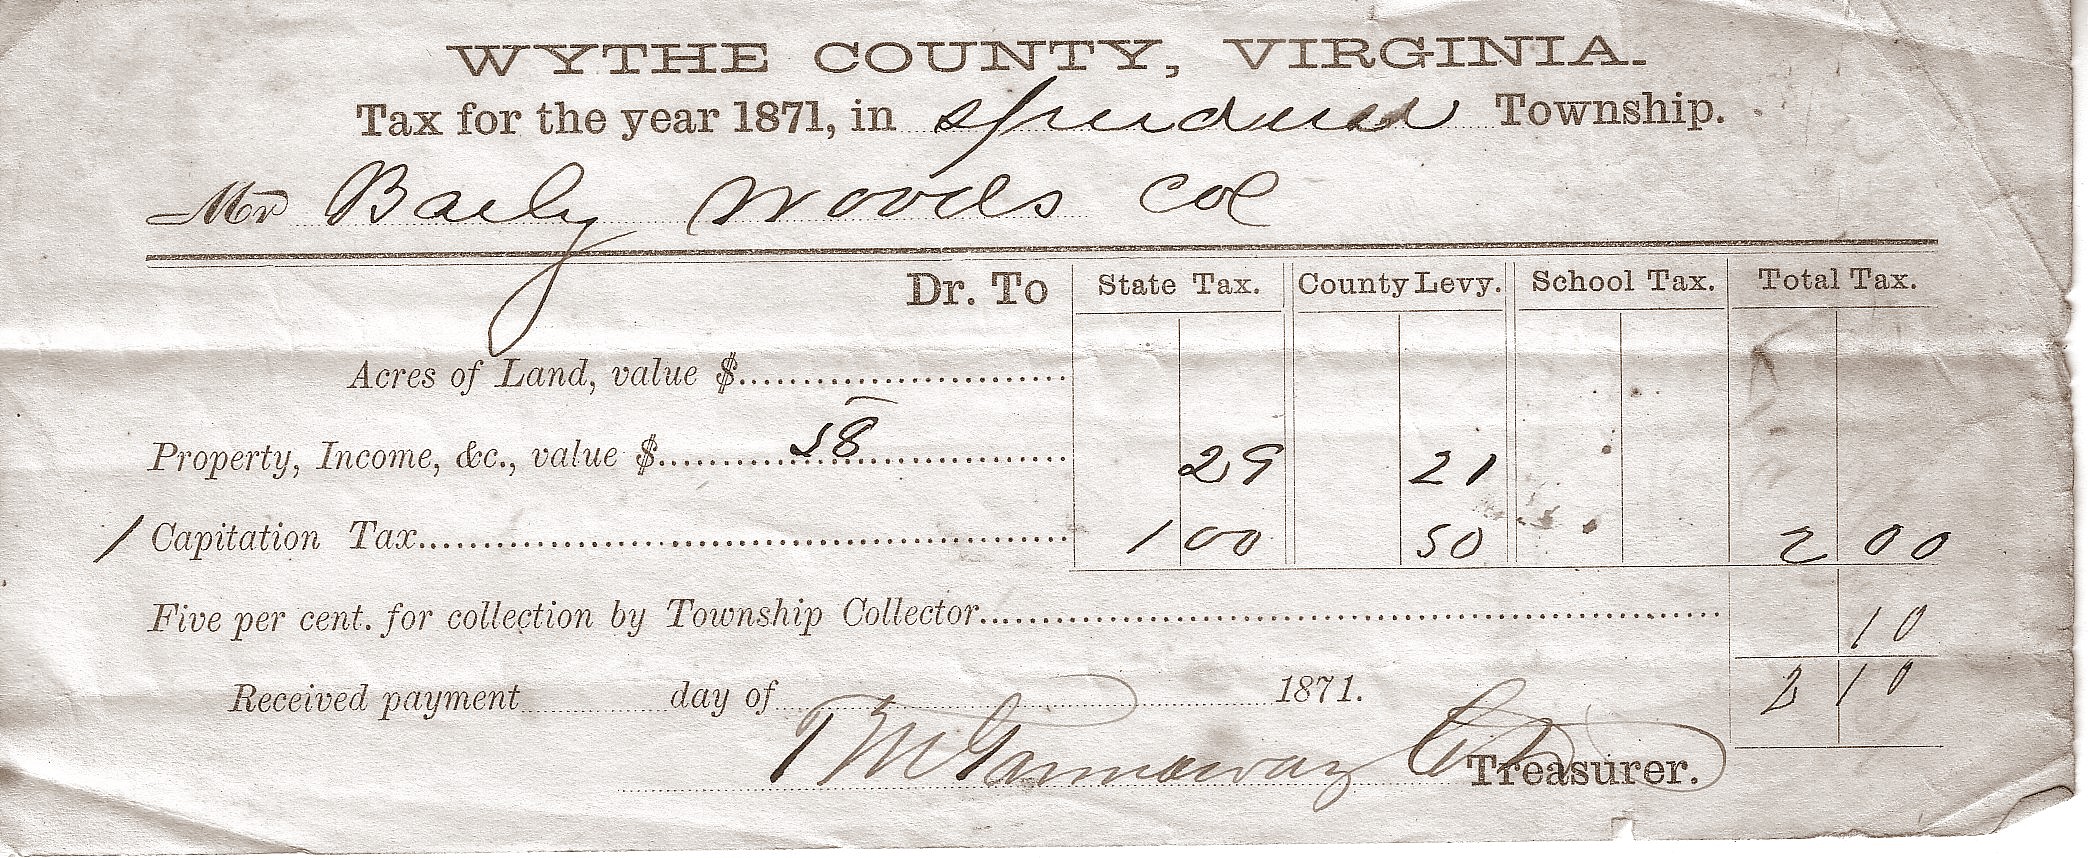 WYTHE COUNTY, VIRGINIA.
Tax for the year 1871, in Township.
Mr Baily Woods Col
Dr. To State Tax. County Levy. School Tax. Total Tax.
Acres of Land, value $
Property, Income, &c., value $ 58 29 21
1 Capitation Tax 1 00 50 2 00
Five per cent. for collection by Township Collector 10
Received payment day of 1871. 2 10
Gannaway Treasurer.